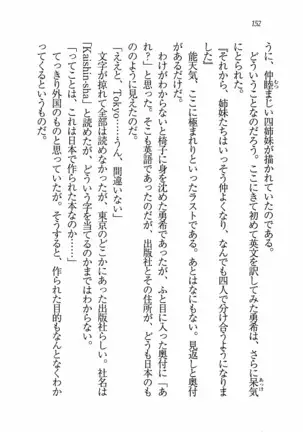 152
うに、仲睦まじい四姉妹が描かれていたのである。
むつ
どういうことなのだろう。ここにきて初めて英文を訳してみた勇希は、さらに呆気
あっけ
にとられた。
『それから、姉妹たちはいっそう仲よくなり、なんでも四人で分け合うようになりま
した』
能天気、ここに極まれりといったラストである。あとはなにもない。見返しと奥付
があるだけだ。
わけがわからないと椅子に身を沈めた勇希であったが、ふと目に入った奥付に「あ
れ？」と思った。そこも英語であったのだが、出版社とその住所が、どうも日本のも
ののように見えたのだ。
「ええと、Tokyo……うん、間違いない」
文字が掠れて全部は読めなかったが、東京のどこかにあった出版社らしい。社名は
「Kaishin-sha」と読めたが、どういう字を当てるのかまではわからない。
「ってことは、これは日本で作られた本なのか……」
てっきり外国のものと思っていたのだが。そうすると、作られた目的もなんとなくわか
ってくるというものだ。